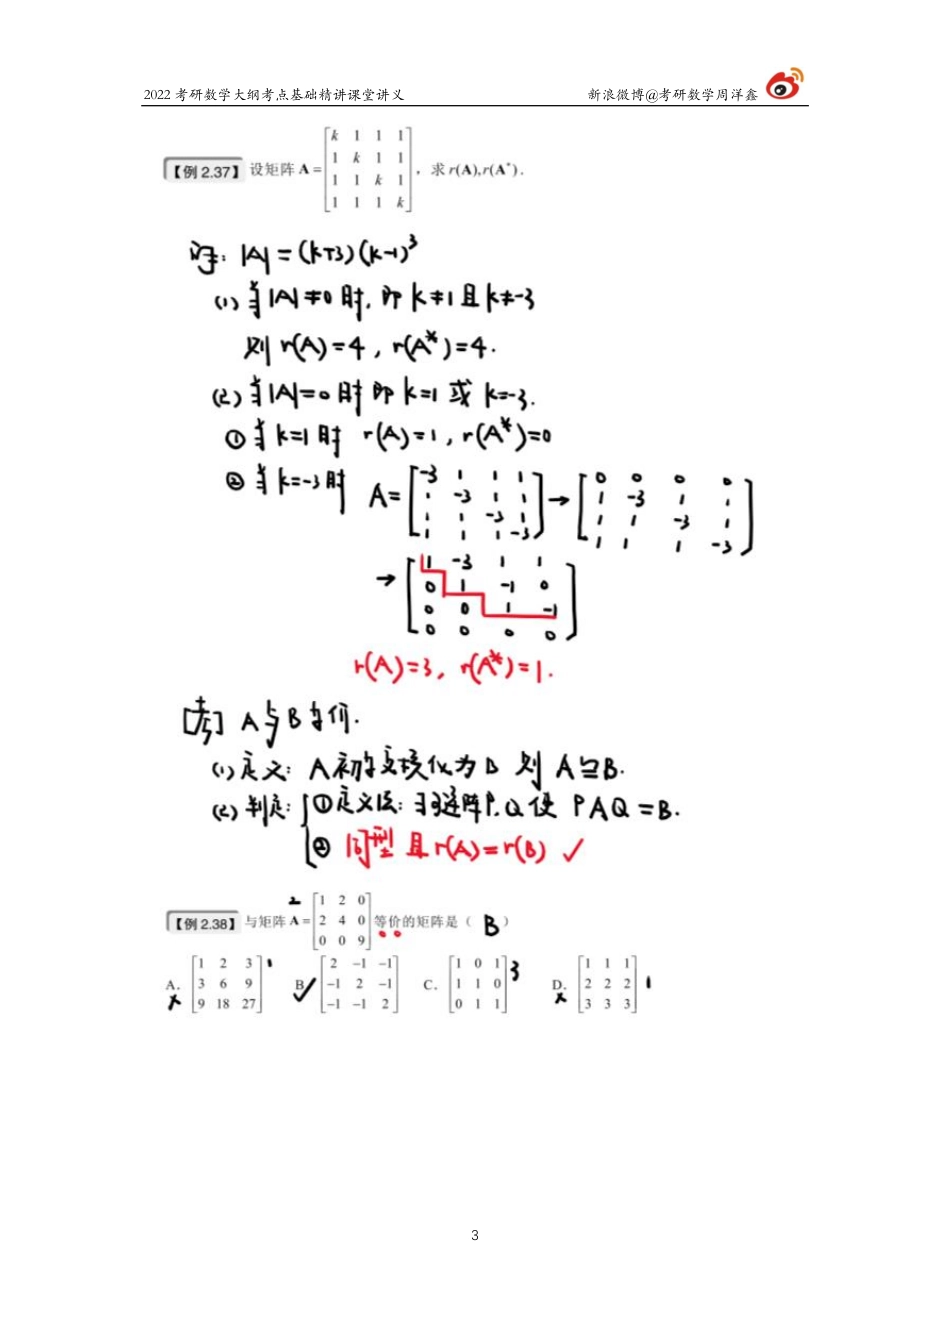 2022 考研数学大纲考点基础精讲课堂讲义 新浪微博@考研数学周洋鑫
【例 2.37】设矩阵 A = [k 1 1 1; 1 k 1 1; 1 1 k 1; 1 1 1 k], 求 r(A),r(A*).
解: |A| = (k+3)(k-1)³
(1) 当|A|≠0时, 即 k≠1且k≠-3
则 r(A)=4, r(A*)=4.
(2) 当|A|=0时即 k=1 或 k=-3.
① 当 k=1时 r(A)=1, r(A*)=0
② 当 k=-3时 A= [-3 1 1 1; 1 -3 1 1; 1 1 -3 1; 1 1 1 -3] → [0 0 0 0; 1 -3 1 1; 1 1 -3 1; 1 1 1 -3]
→ [1 -3 1 1; 0 1 -1 0; 0 0 1 -1; 0 0 0 0]
r(A)=3, r(A*)=1.
[考] A与B等价.
(1) 定义: A初等变换化为B 则 A≅B.
(2) 判定: ①定义法: 可逆阵P.Q使 PAQ=B.
② 同型且r(A)=r(B) ✓
【例 2.38】与矩阵 A = [1 2 0; 2 4 0; 0 0 9] 等价的矩阵是( B ) 2
A. [1 2 3; 3 6 9; 9 18 27] 1 × B. [2 -1 -1; -1 2 -1; -1 -1 2] ✓ C. [1 0 1; 1 1 0; 0 1 1] 3 D. [1 1 1; 2 2 2; 3 3 3] 1 ×
3